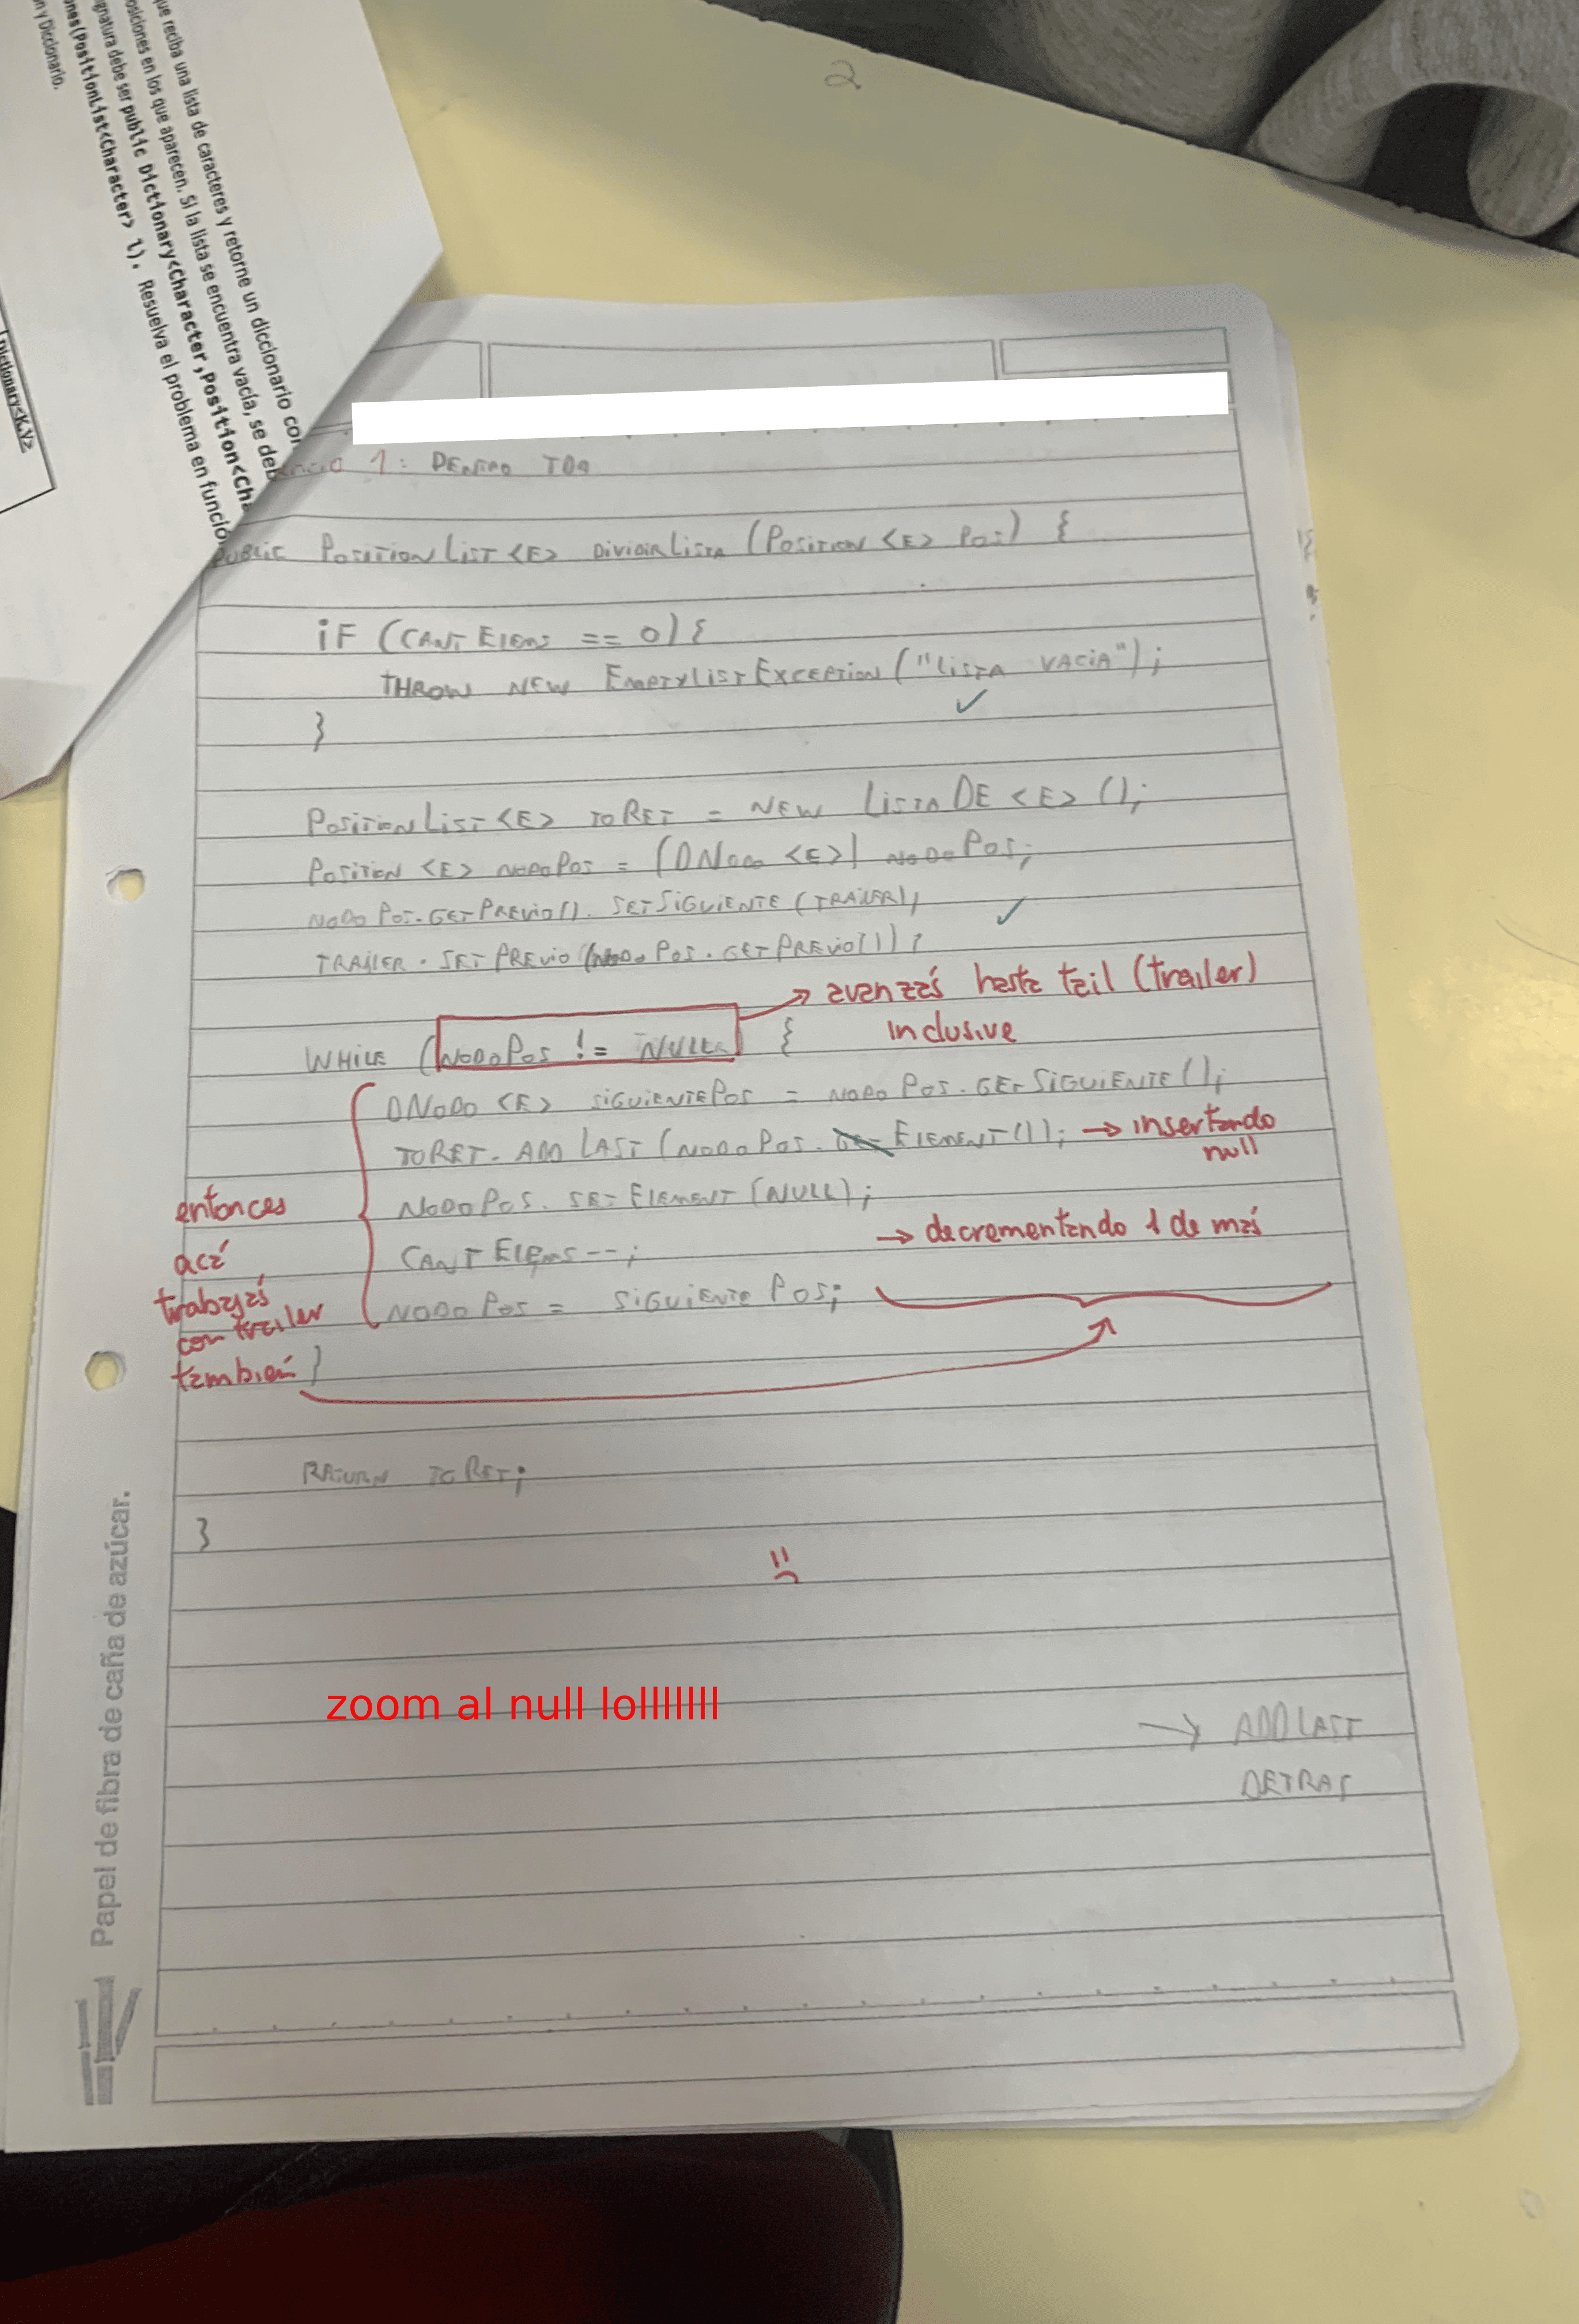 que reciba una lista de caracteres y retorne un diccionario con
posiciones en los que aparecen. Si la lista se encuentra vacía, se deb
gnatura debe ser public Dictionary<Character,Position<Cha
ones(PositionList<Character> l). Resuelva el problema en funció
n y Diccionario.
Dictionary<K,V>
2
1: DENTRO TDA
PUBLIC POSITIONLIST<E> DIVIDIRLISTA (POSITION<E> POS) {
IF (CANTELEMS == 0) {
THROW NEW EMPTYLISTEXCEPTION("LISTA VACIA");
}
POSITIONLIST<E> TORET = NEW LISTADE<E>();
POSITION<E> NODOPOS = (DNODO<E>) NODOPOS;
NODOPOS.GETPREVIO().SETSIGUIENTE(TRAILER);
TRAILER.SETPREVIO(NODOPOS.GETPREVIO());
→ avanzás hasta tail (trailer)
inclusive
WHILE (NODOPOS != NULL) {
DNODO<E> SIGUIENTEPOS = NODOPOS.GETSIGUIENTE();
TORET.ADDLAST(NODOPOS.ELEMENT()); → insertando
null
NODOPOS.SETELEMENT(NULL);
CANTELEMS--; → decrementando 1 de más
NODOPOS = SIGUIENTEPOS;
entonces
acá
trabajás
con trailer
también
}
RETURN TORET;
}
zoom al null lolllllll
→ ADDLAST
DETRAS
Papel de fibra de caña de azúcar.